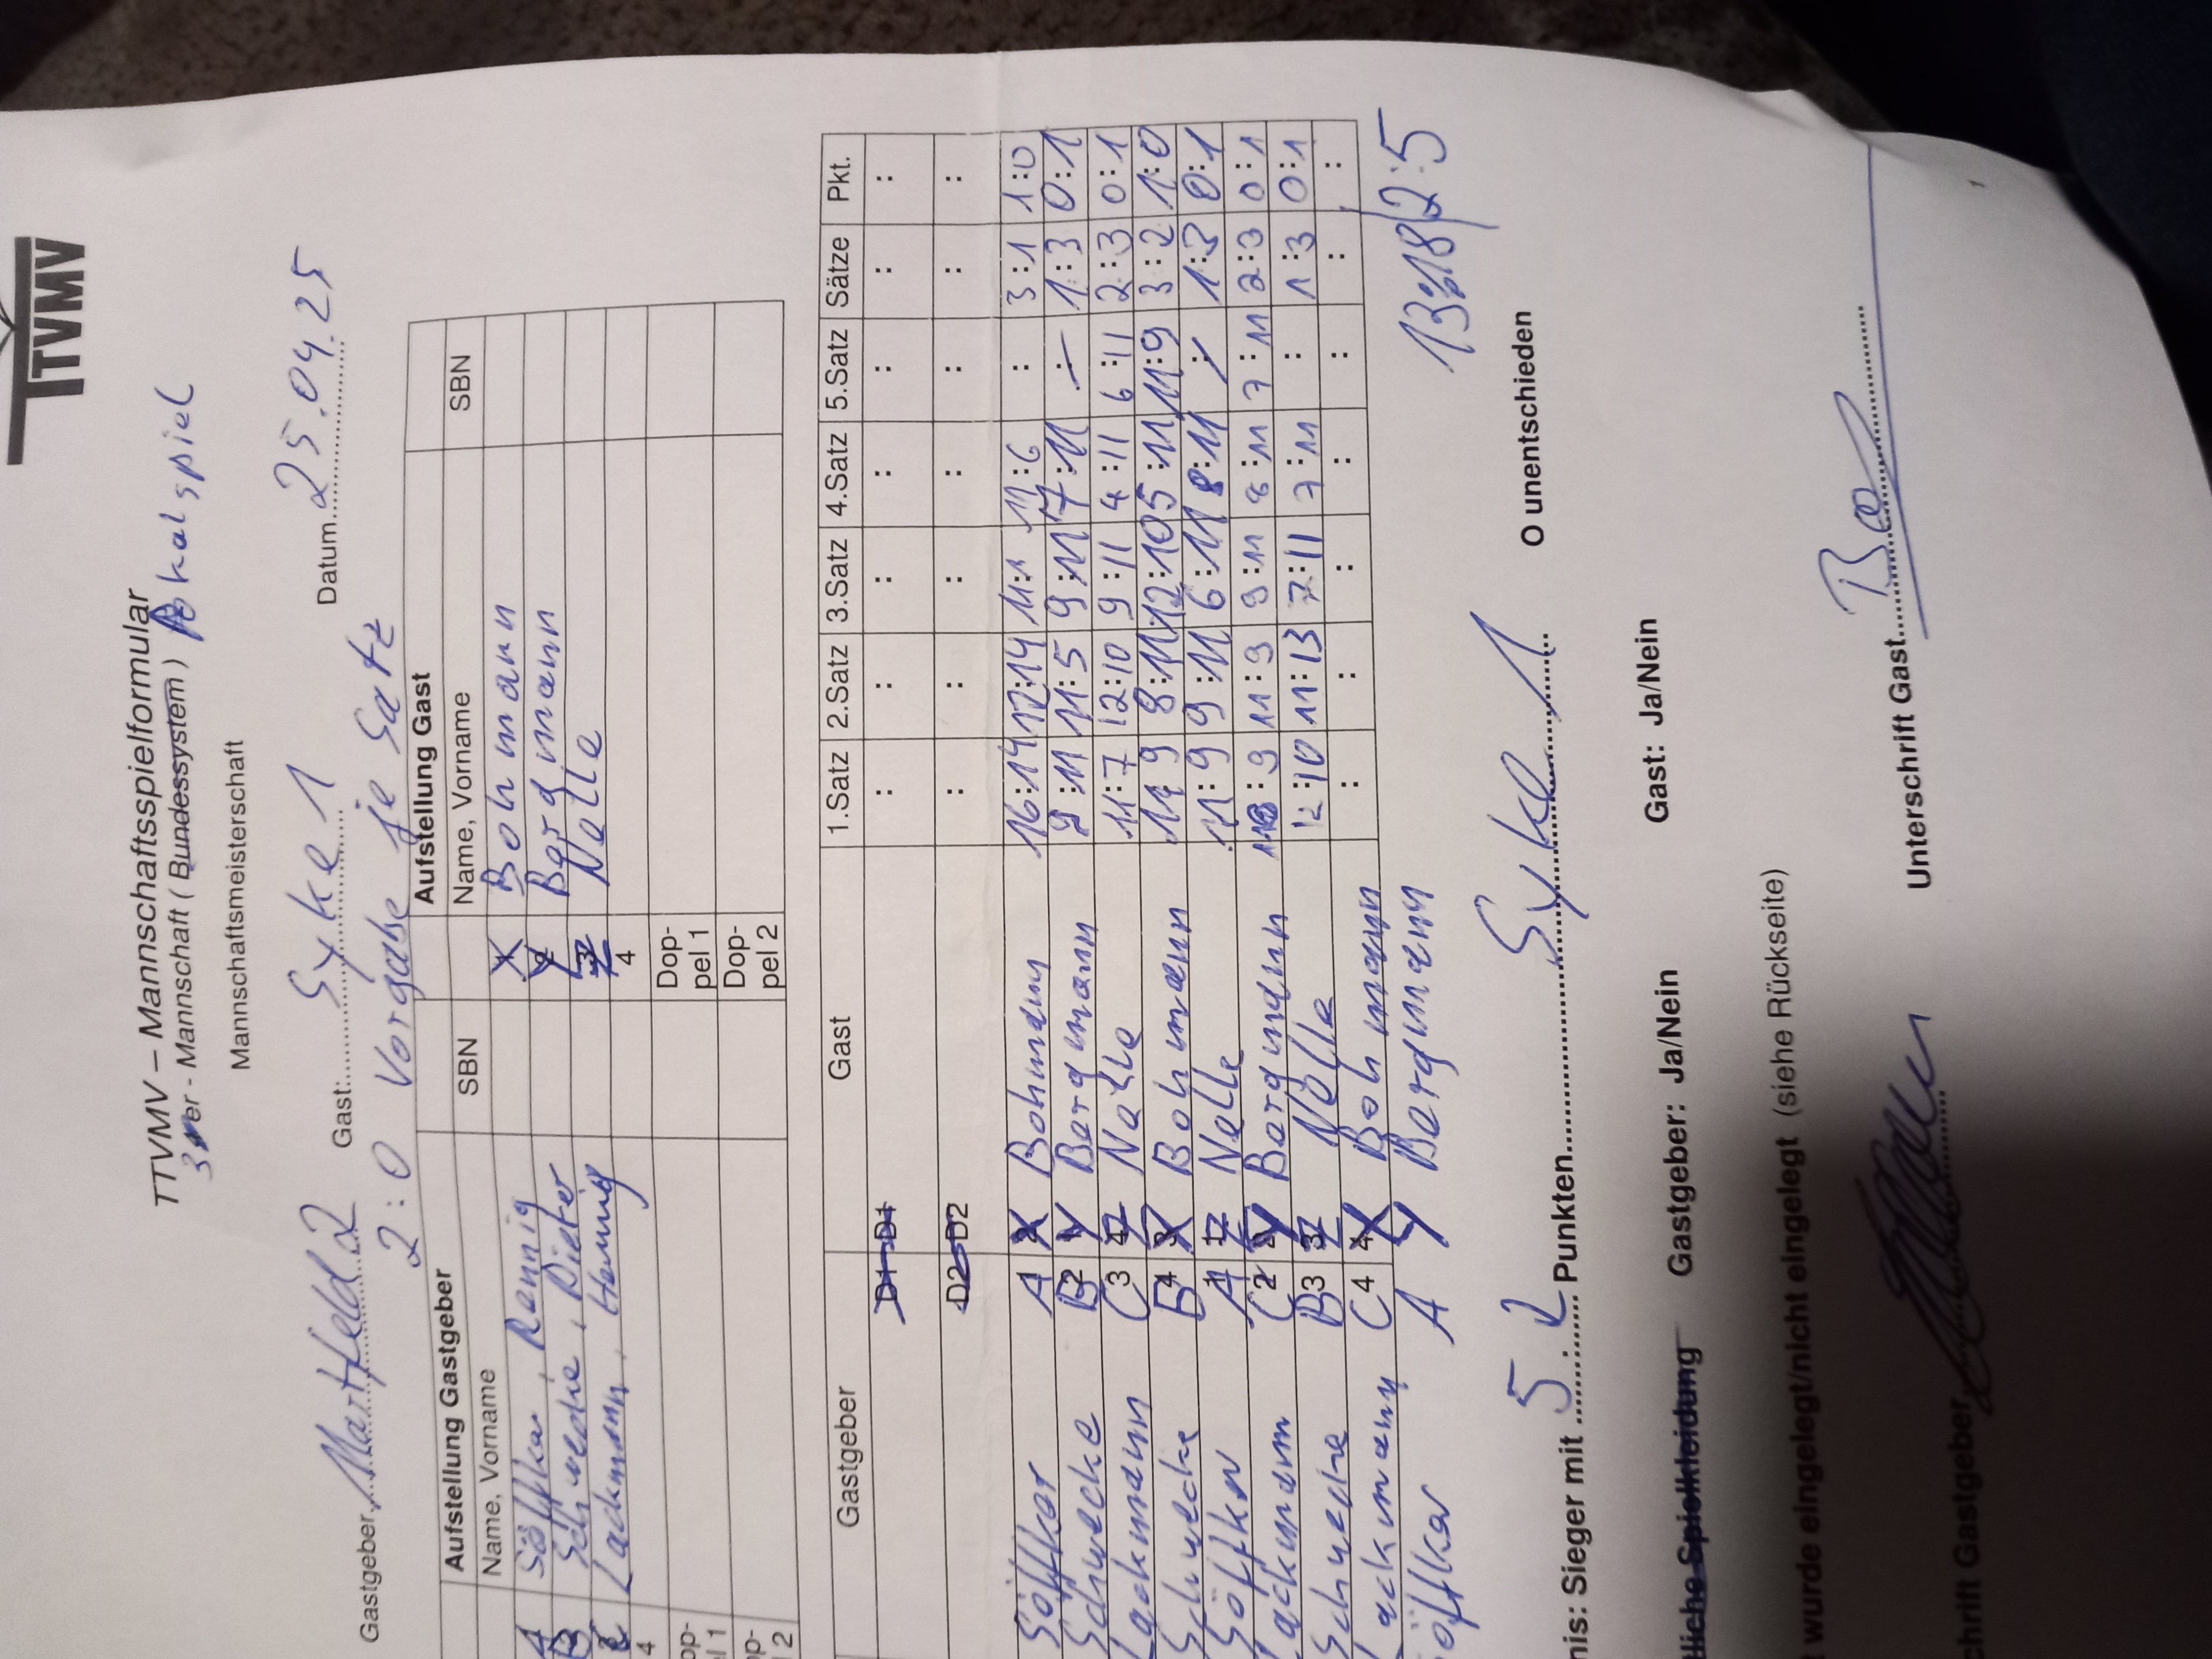 TTVMV
TTVMV – Mannschaftsspielformular
3er - Mannschaft ( Bundessystem ) Pokalspiel
Mannschaftsmeisterschaft
Gastgeber Martfeld 2 Gast: Syke 1 Datum 25.04.25
2:0 Vorgabe je Satz
Aufstellung Gastgeber Aufstellung Gast
Name, Vorname SBN Name, Vorname SBN
A Söffker, Rennig X Bohmann
B Schwecke, Dieter Y Bergmann
C Lackmann, Hennig Z Nelle
4 4
Dop-
pel 1
Dop-
pel 2
Gastgeber Gast 1.Satz 2.Satz 3.Satz 4.Satz 5.Satz Sätze Pkt.
D1 D1 : : : : : : :
D2 D2 : : : : : : :
Söffker A X Bohmann 16:14 12:14 11:1 11:6 : 3:1 1:0
Schwecke B Y Bergmann 9:11 11:5 9:11 7:11 : 1:3 0:1
Lackmann C Z Nelle 11:7 12:10 9:11 4:11 6:11 2:3 0:1
Schwecke B X Bohmann 11:9 8:11 12:10 5:11 11:9 3:2 1:0
Söffker A Z Nelle 11:9 9:11 6:11 8:11 : 1:3 0:1
Lackmann C Y Bergmann :9 11:9 9:11 8:11 7:11 2:3 0:1
Schwecke B Z Nelle 12:10 11:13 7:11 7:11 : 1:3 0:1
Lackmann C X Bohmann : : : : : : :
Söffker A Y Bergmann 13:18 2:5
nis: Sieger mit 5:2 Punkten Syke 1 O unentschieden
liche Spielkleidung Gastgeber: Ja/Nein Gast: Ja/Nein
wurde eingelegt/nicht eingelegt (siehe Rückseite)
chrift Gastgeber Unterschrift Gast